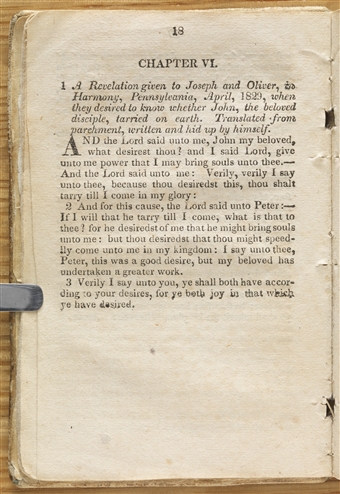 18
CHAPTER VI.
1 A Revelation given to Joseph and Oliver, in
Harmony, Pennsylvania, April, 1829, when
they desired to know whether John, the beloved
disciple, tarried on earth. Translated from
parchment, written and hid up by himself.
AND the Lord said unto me, John my beloved,
what desirest thou? and I said Lord, give
unto me power that I may bring souls unto thee.—
And the Lord said unto me: Verily, verily I say
unto thee, because thou desiredst this, thou shalt
tarry till I come in my glory:
2 And for this cause, the Lord said unto Peter:—
If I will that he tarry till I come, what is that to
thee? for he desiredst of me that he might bring souls
unto me: but thou desiredst that thou might speed-
ily come unto me in my kingdom: I say unto thee,
Peter, this was a good desire, but my beloved has
undertaken a greater work.
3 Verily I say unto you, ye shall both have accor-
ding to your desires, for ye both joy in that which
ye have desired.